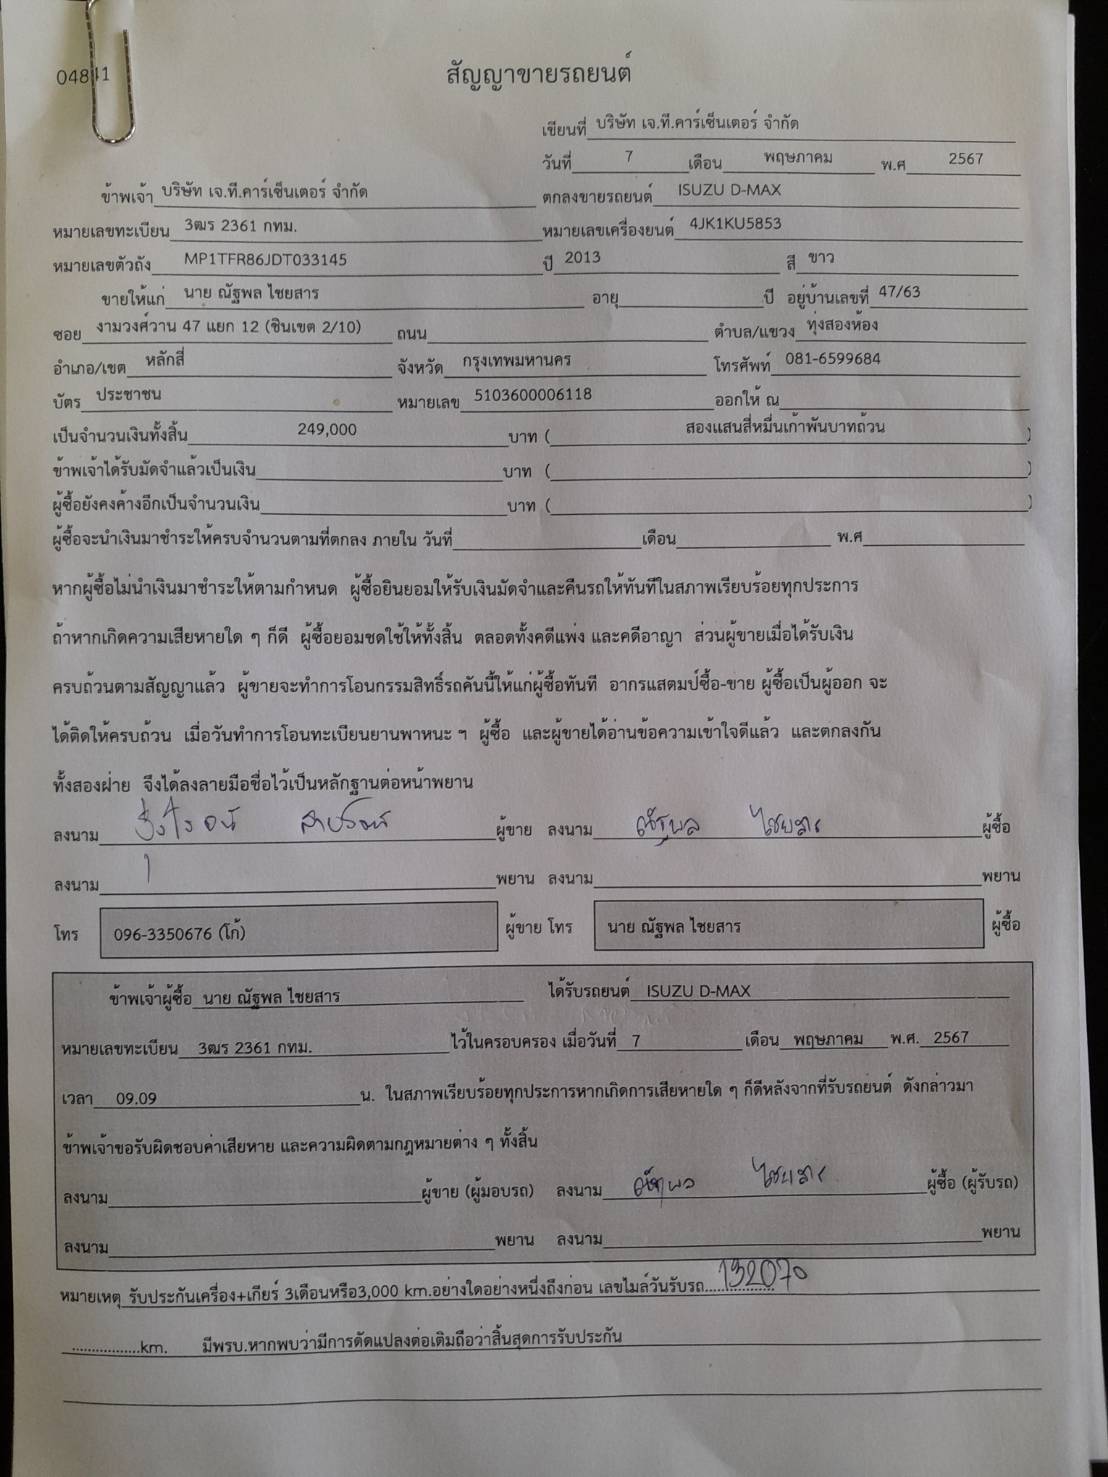 สัญญาขายรถยนต์
เขียนที่ บริษัท เจ.ที.คาร์เซ็นเตอร์ จำกัด
วันที่ 7 เดือน พฤษภาคม พ.ศ 2567
ข้าพเจ้า บริษัท เจ.ที.คาร์เซ็นเตอร์ จำกัด ตกลงขายรถยนต์ ISUZU D-MAX
หมายเลขทะเบียน 3ฒร 2361 กทม. หมายเลขเครื่องยนต์ 4JK1KU5853
หมายเลขตัวถัง MP1TFR86JDT033145 ปี 2013 สี ขาว
ขายให้แก่ นาย ณัฐพล ไชยสาร อายุ ปี อยู่บ้านเลขที่ 47/63
ซอย งามวงศ์วาน 47 แยก 12 (ชินเขต 2/10) ถนน ตำบล/แขวง ทุ่งสองห้อง
อำเภอ/เขต หลักสี่ จังหวัด กรุงเทพมหานคร โทรศัพท์ 081-6599684
บัตร ประชาชน หมายเลข 5103600006118 ออกให้ ณ
เป็นจำนวนเงินทั้งสิ้น 249,000 บาท ( สองแสนสี่หมื่นเก้าพันบาทถ้วน )
ข้าพเจ้าได้รับมัดจำแล้วเป็นเงิน บาท ( )
ผู้ซื้อยังคงค้างอีกเป็นจำนวนเงิน บาท ( )
ผู้ซื้อจะนำเงินมาชำระให้ครบจำนวนตามที่ตกลง ภายใน วันที่ เดือน พ.ศ
หากผู้ซื้อไม่นำเงินมาชำระให้ตามกำหนด ผู้ซื้อยินยอมให้รับเงินมัดจำและคืนรถให้ทันทีในสภาพเรียบร้อยทุกประการ
ถ้าหากเกิดความเสียหายใด ๆ ก็ดี ผู้ซื้อยอมชดใช้ให้ทั้งสิ้น ตลอดทั้งคดีแพ่ง และคดีอาญา ส่วนผู้ขายเมื่อได้รับเงิน
ครบถ้วนตามสัญญาแล้ว ผู้ขายจะทำการโอนกรรมสิทธิ์รถคันนี้ให้แก่ผู้ซื้อทันที อากรแสตมป์ซื้อ-ขาย ผู้ซื้อเป็นผู้ออก จะ
ได้ติดให้ครบถ้วน เมื่อวันทำการโอนทะเบียนยานพาหนะ ฯ ผู้ซื้อ และผู้ขายได้อ่านข้อความเข้าใจดีแล้ว และตกลงกัน
ทั้งสองฝ่าย จึงได้ลงลายมือชื่อไว้เป็นหลักฐานต่อหน้าพยาน
ลงนาม ผู้ขาย ลงนาม ณัฐพล ไชยสาร ผู้ซื้อ
ลงนาม พยาน ลงนาม พยาน
โทร 096-3350676 (โก้) ผู้ขาย โทร นาย ณัฐพล ไชยสาร ผู้ซื้อ
ข้าพเจ้าผู้ซื้อ นาย ณัฐพล ไชยสาร ได้รับรถยนต์ ISUZU D-MAX
หมายเลขทะเบียน 3ฒร 2361 กทม. ไว้ในครอบครอง เมื่อวันที่ 7 เดือน พฤษภาคม พ.ศ. 2567
เวลา 09.09 น. ในสภาพเรียบร้อยทุกประการหากเกิดการเสียหายใด ๆ ก็ดีหลังจากที่รับรถยนต์ ดังกล่าวมา
ข้าพเจ้าขอรับผิดชอบค่าเสียหาย และความผิดตามกฎหมายต่าง ๆ ทั้งสิ้น
ลงนาม ผู้ขาย (ผู้มอบรถ) ลงนาม ณัฐพล ไชยสาร ผู้ซื้อ (ผู้รับรถ)
ลงนาม พยาน ลงนาม พยาน
หมายเหตุ รับประกันเครื่อง+เกียร์ 3เดือนหรือ3,000 km.อย่างใดอย่างหนึ่งถึงก่อน เลขไมล์วันรับรถ 132070
km. มีพรบ.หากพบว่ามีการดัดแปลงต่อเติมถือว่าสิ้นสุดการรับประกัน